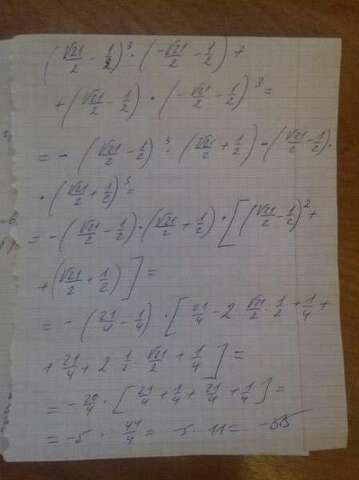 (√21/2 - 1/2)³ · (-√21/2 - 1/2) +
+ (√21/2 - 1/2) · (-√21/2 - 1/2)³ =
= - (√21/2 - 1/2)³ · (√21/2 + 1/2) - (√21/2 - 1/2) ·
· (√21/2 + 1/2)³ =
= -(√21/2 - 1/2) · (√21/2 + 1/2) · [(√21/2 - 1/2)² +
+ (√21/2 + 1/2)] =
= - (21/4 - 1/4) · [21/4 - 2 · √21/2 · 1/2 + 1/4 +
+ 21/4 + 2 · 1/2 · √21/2 + 1/4] =
= - 20/4 · [21/4 + 1/4 + 21/4 + 1/4] =
= -5 · 44/4 = -5 · 11 = -55